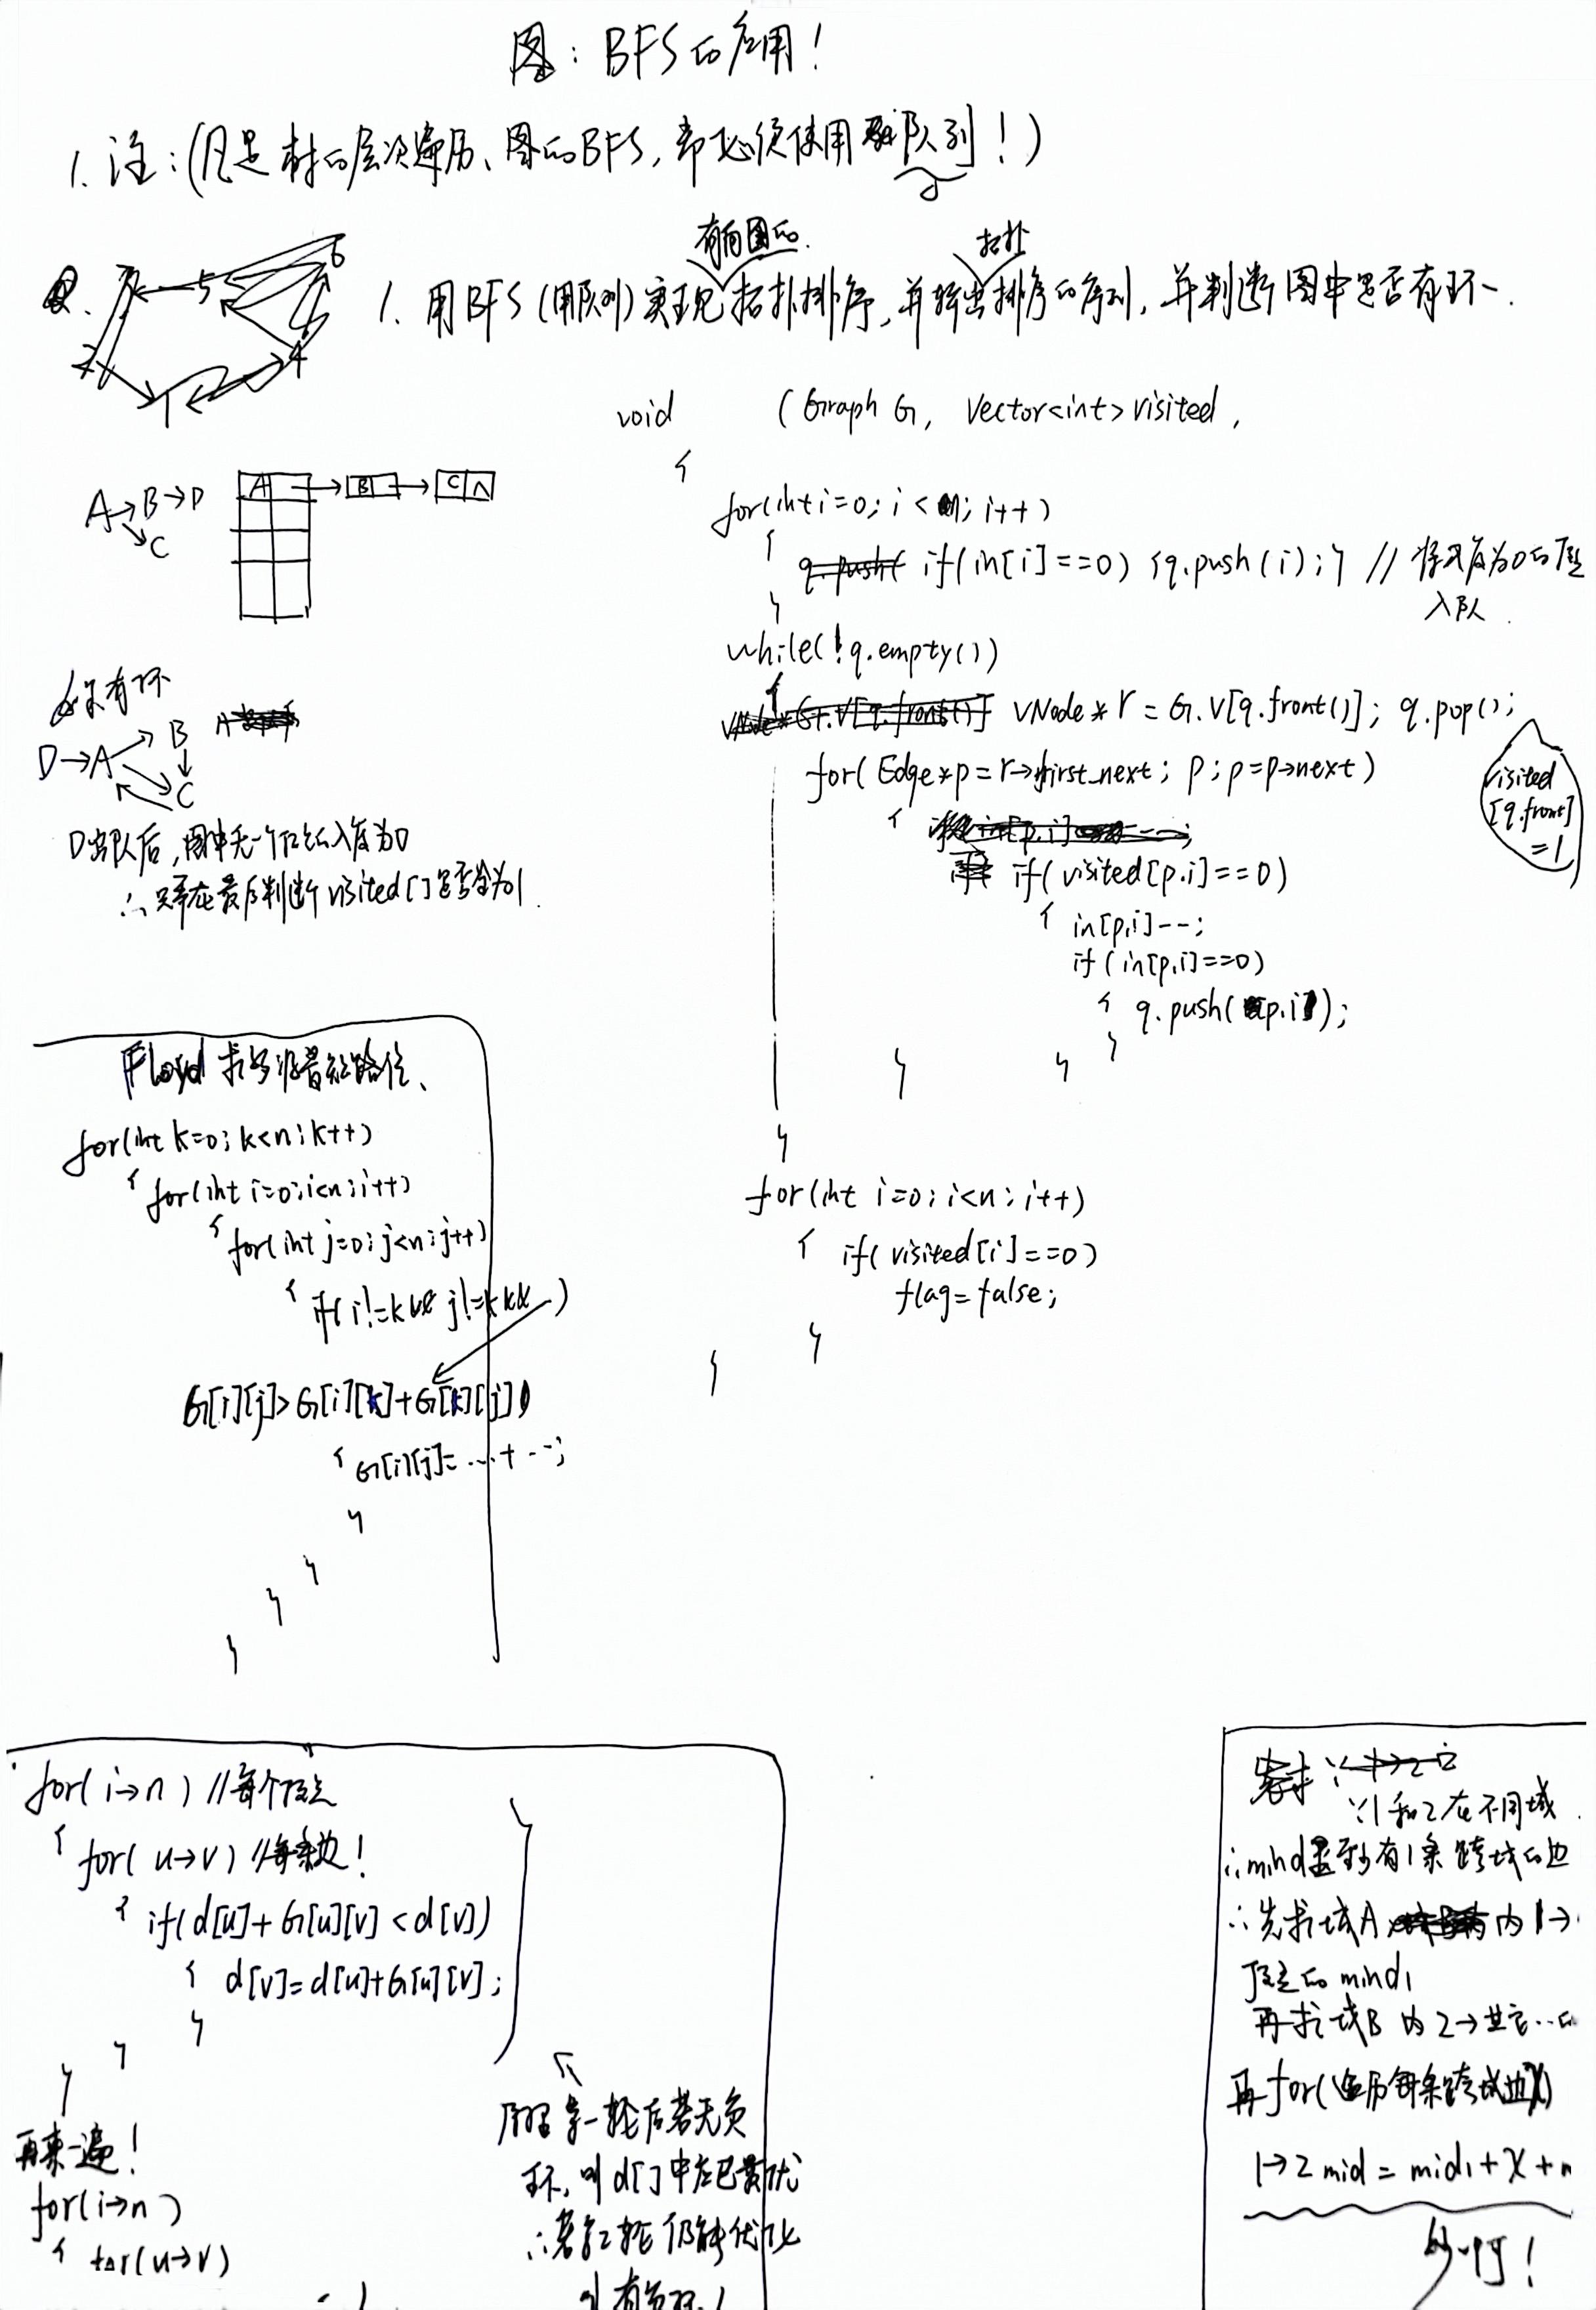 图：BFS的应用！
1. 注：(凡是树的层次遍历、图的BFS，都必须使用队列！)
有向图的
拓扑
1. 用BFS(用队列)实现拓扑排序，并输出排序的序列，并判断图中是否有环.
2.
3 5 6
2 4
1
void (Graph G, Vector<int> visited,
{
for(int i=0; i<n; i++)
{
if(in[i]==0) {q.push(i);} // 将入度为0的顶点
入队.
}
while(!q.empty())
{
VNode* r = G.V[q.front()]; q.pop();
visited
[q.front]
=1
for(Edge*p=r->first_next; p; p=p->next)
{
if(visited[p.i]==0)
{ in[p.i]--;
if(in[p.i]==0)
{ q.push(p.i);
}
}
}
}
for(int i=0; i<n; i++)
{ if(visited[i]==0)
flag=false;
}
}
A→B→D
C
A B C ∧
有环
D→A B
C
D出队后，图中无一个顶点入度为0
∴只需在最后判断visited[]是否全为1.
Floyd求多源最短路径、
for(int k=0; k<n; k++)
{ for(int i=0; i<n; i++)
{ for(int j=0; j<n; j++)
{ if(i!=k && j!=k && )
G[i][j]>G[i][k]+G[k][j])
{ G[i][j]=...+...;
}
}
}
}
for(i→n) //每个顶点
{ for(u→v) //每条边！
{ if(d[u]+G[u][v]<d[v])
{ d[v]=d[u]+G[u][v];
}
}
}
再来一遍！
for(i→n)
{ for(u→v)
第一轮后若无负
环，则d[]中应已最优
∴若第2轮仍能优化
则有负环！
∵1和2在不同域
∴mind至少有1条跨域的边
∴先求域A内1→
顶点的mind1
再求域B内2→其它...的
再for(遍历每条跨域边X)
1→2 mid = mid1+X+m